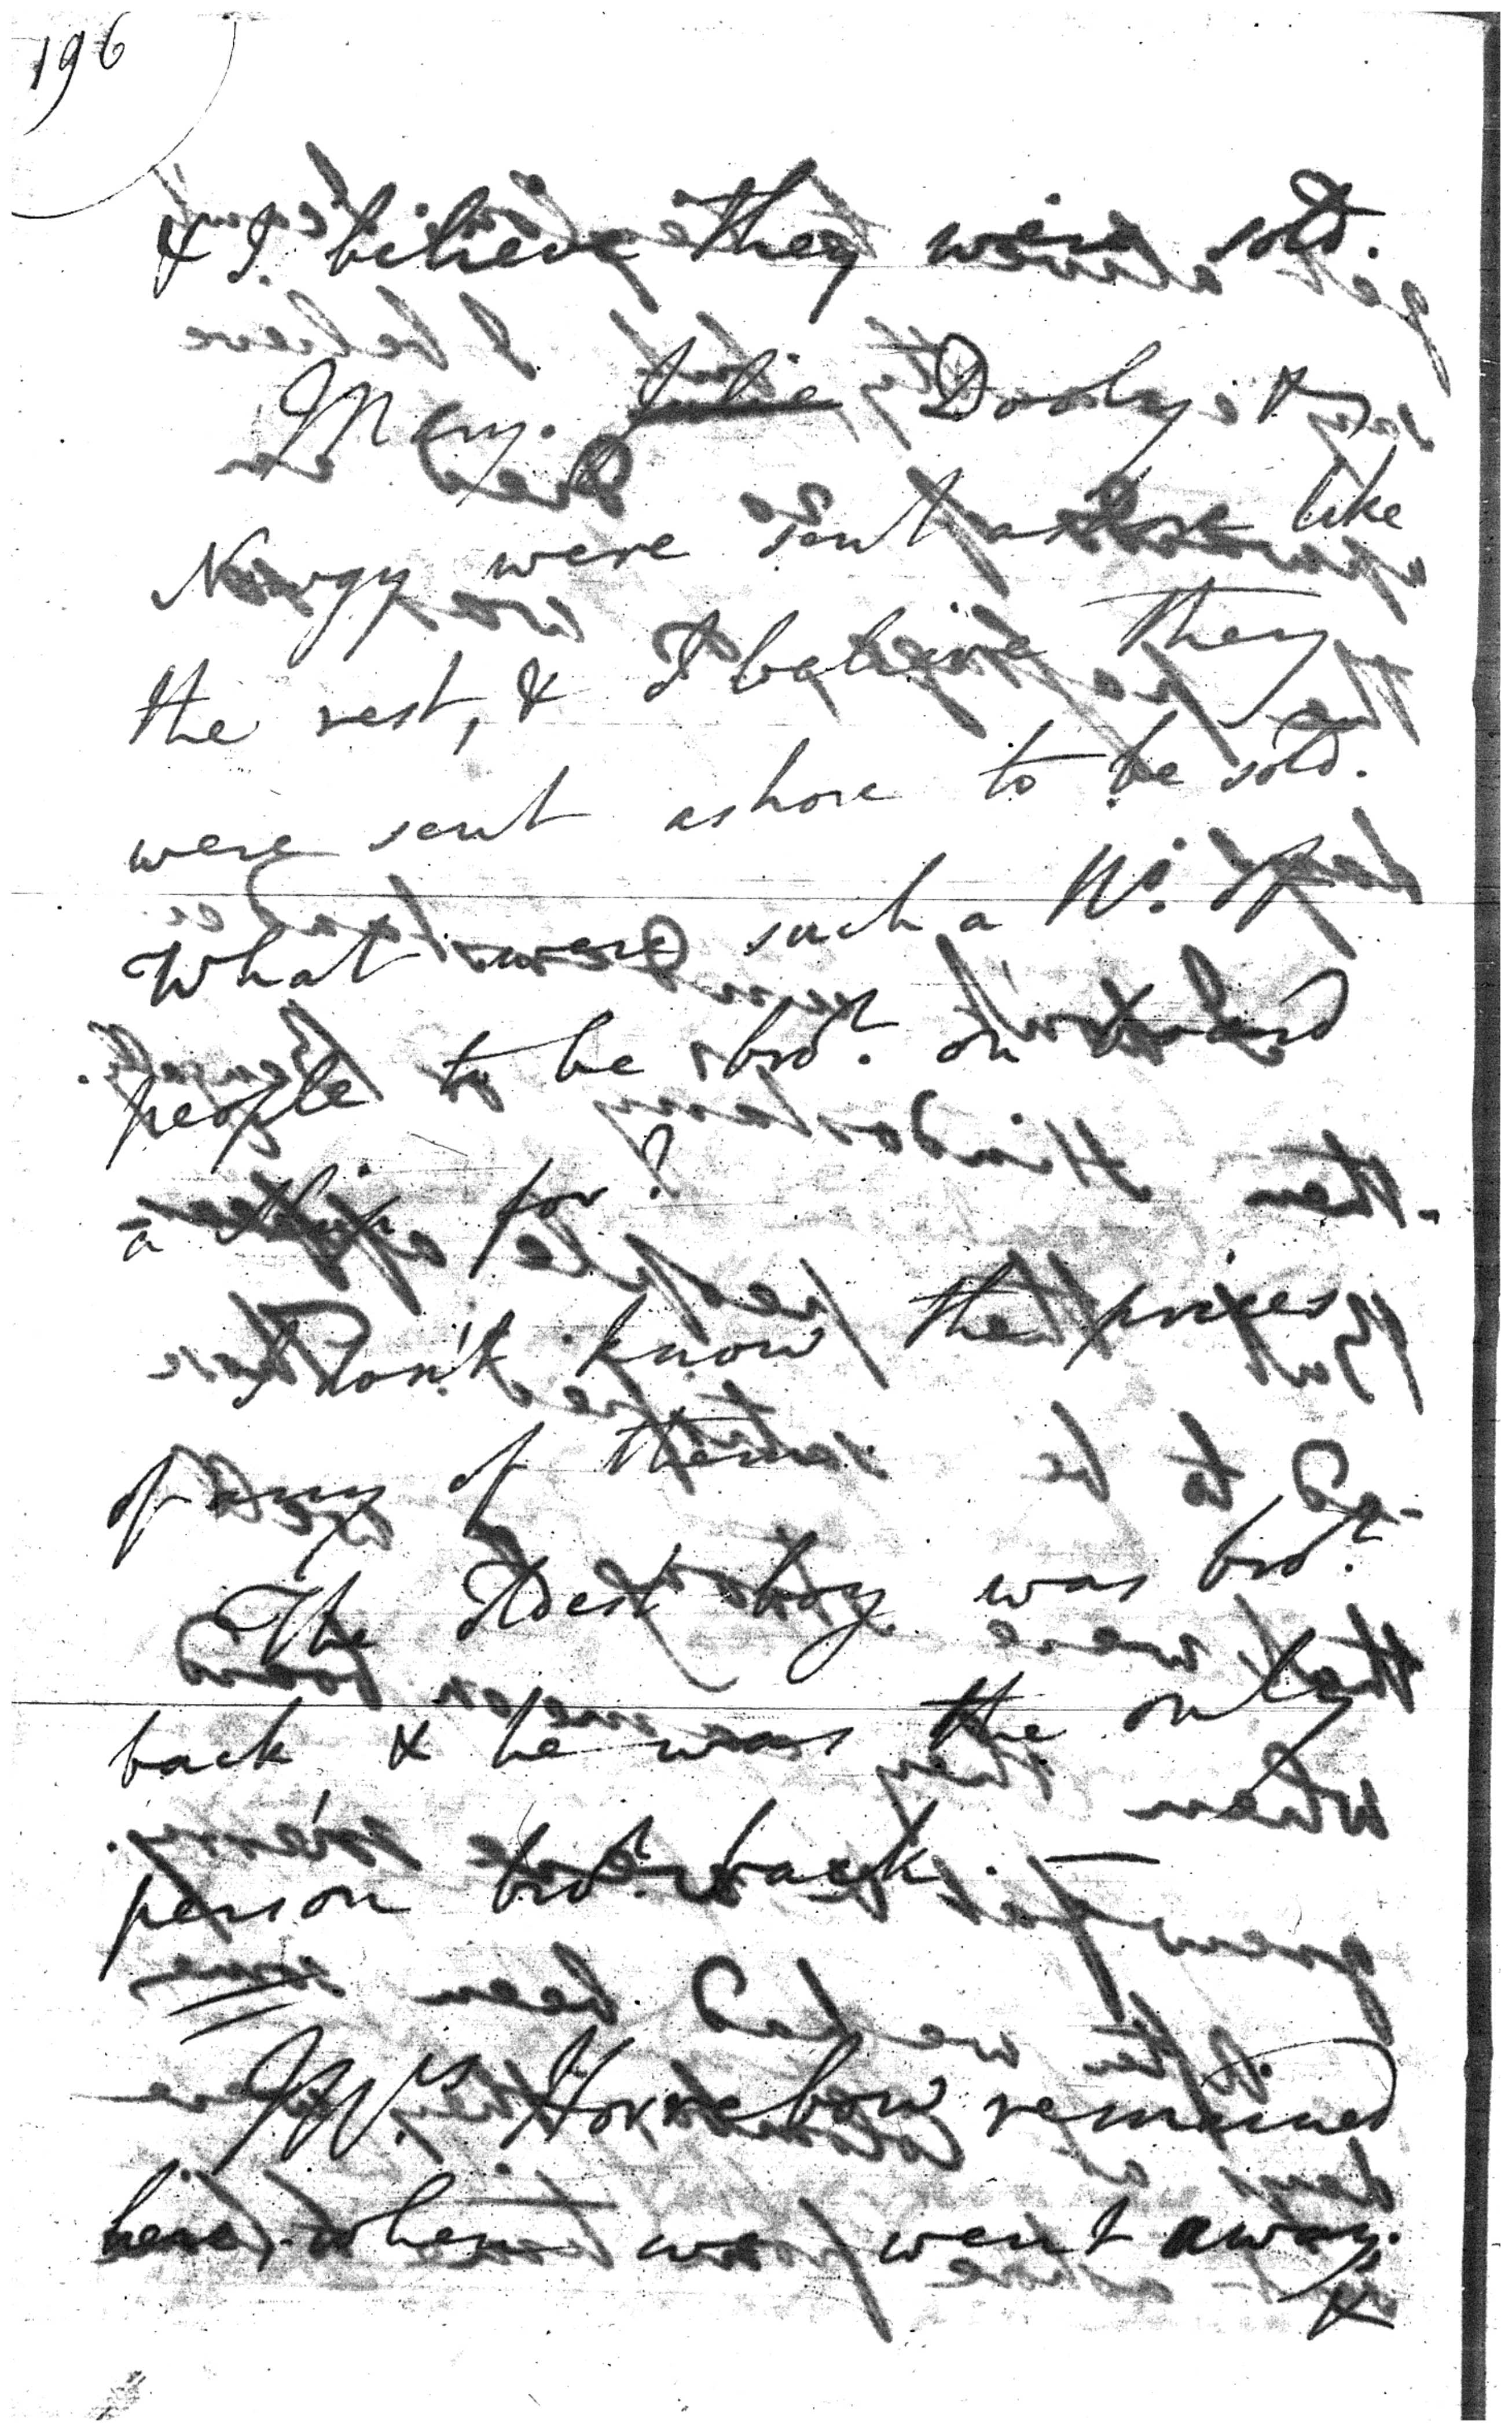 196
& I believe they were sold.
Mary. Julie Dooly &
were sent ashore like
the rest, & I believe they
were sent ashore to be sold.
What were such a No. of
people to be brot. on board
a ship for?
I don't know the prices
of any of them
The oldest boy was brot.
back & he was the only
person brot. back. —
Mrs Horrebow remained
here, when we went away.
&